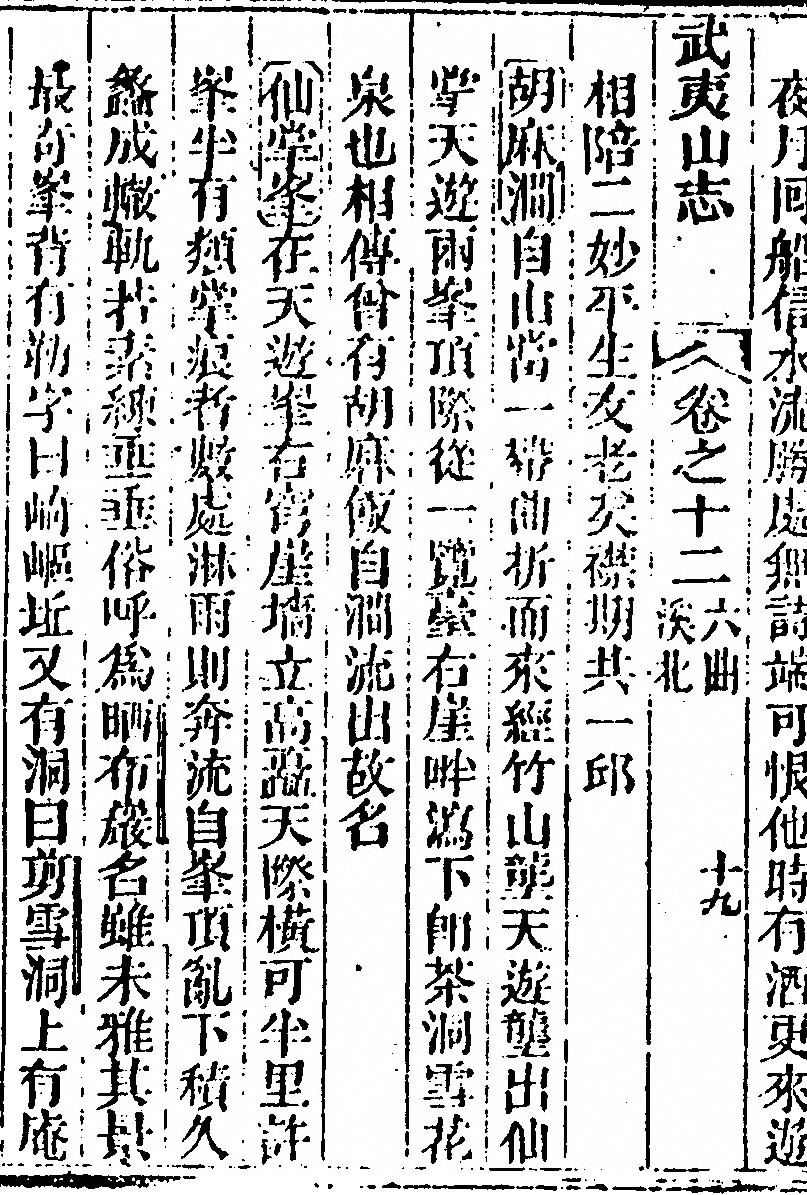 夜月回船信水流勝處無詩端可恨他時有酒更來遊
武夷山志
卷之十二
六曲
溪北
十九
相陪二妙平生友老矣襟期共一邱
胡麻澗自山當一帶曲折而來經竹山壟天遊壟出仙
掌天遊兩峯頂際從一覽臺右崖畔瀉下卽茶洞雪花
泉也相傳曾有胡麻飯自澗流出故名
仙掌峯在天遊峯右穹崖墻立高翥天際橫可半里許
峯半有類掌痕者數處淋雨則奔流自峯頂亂下積久
蠡成轍軌若素練垂垂俗呼爲晒布巖名雖未雅其景
最奇峯背有勒字曰岣嶇址又有洞曰剪雪洞上有庵